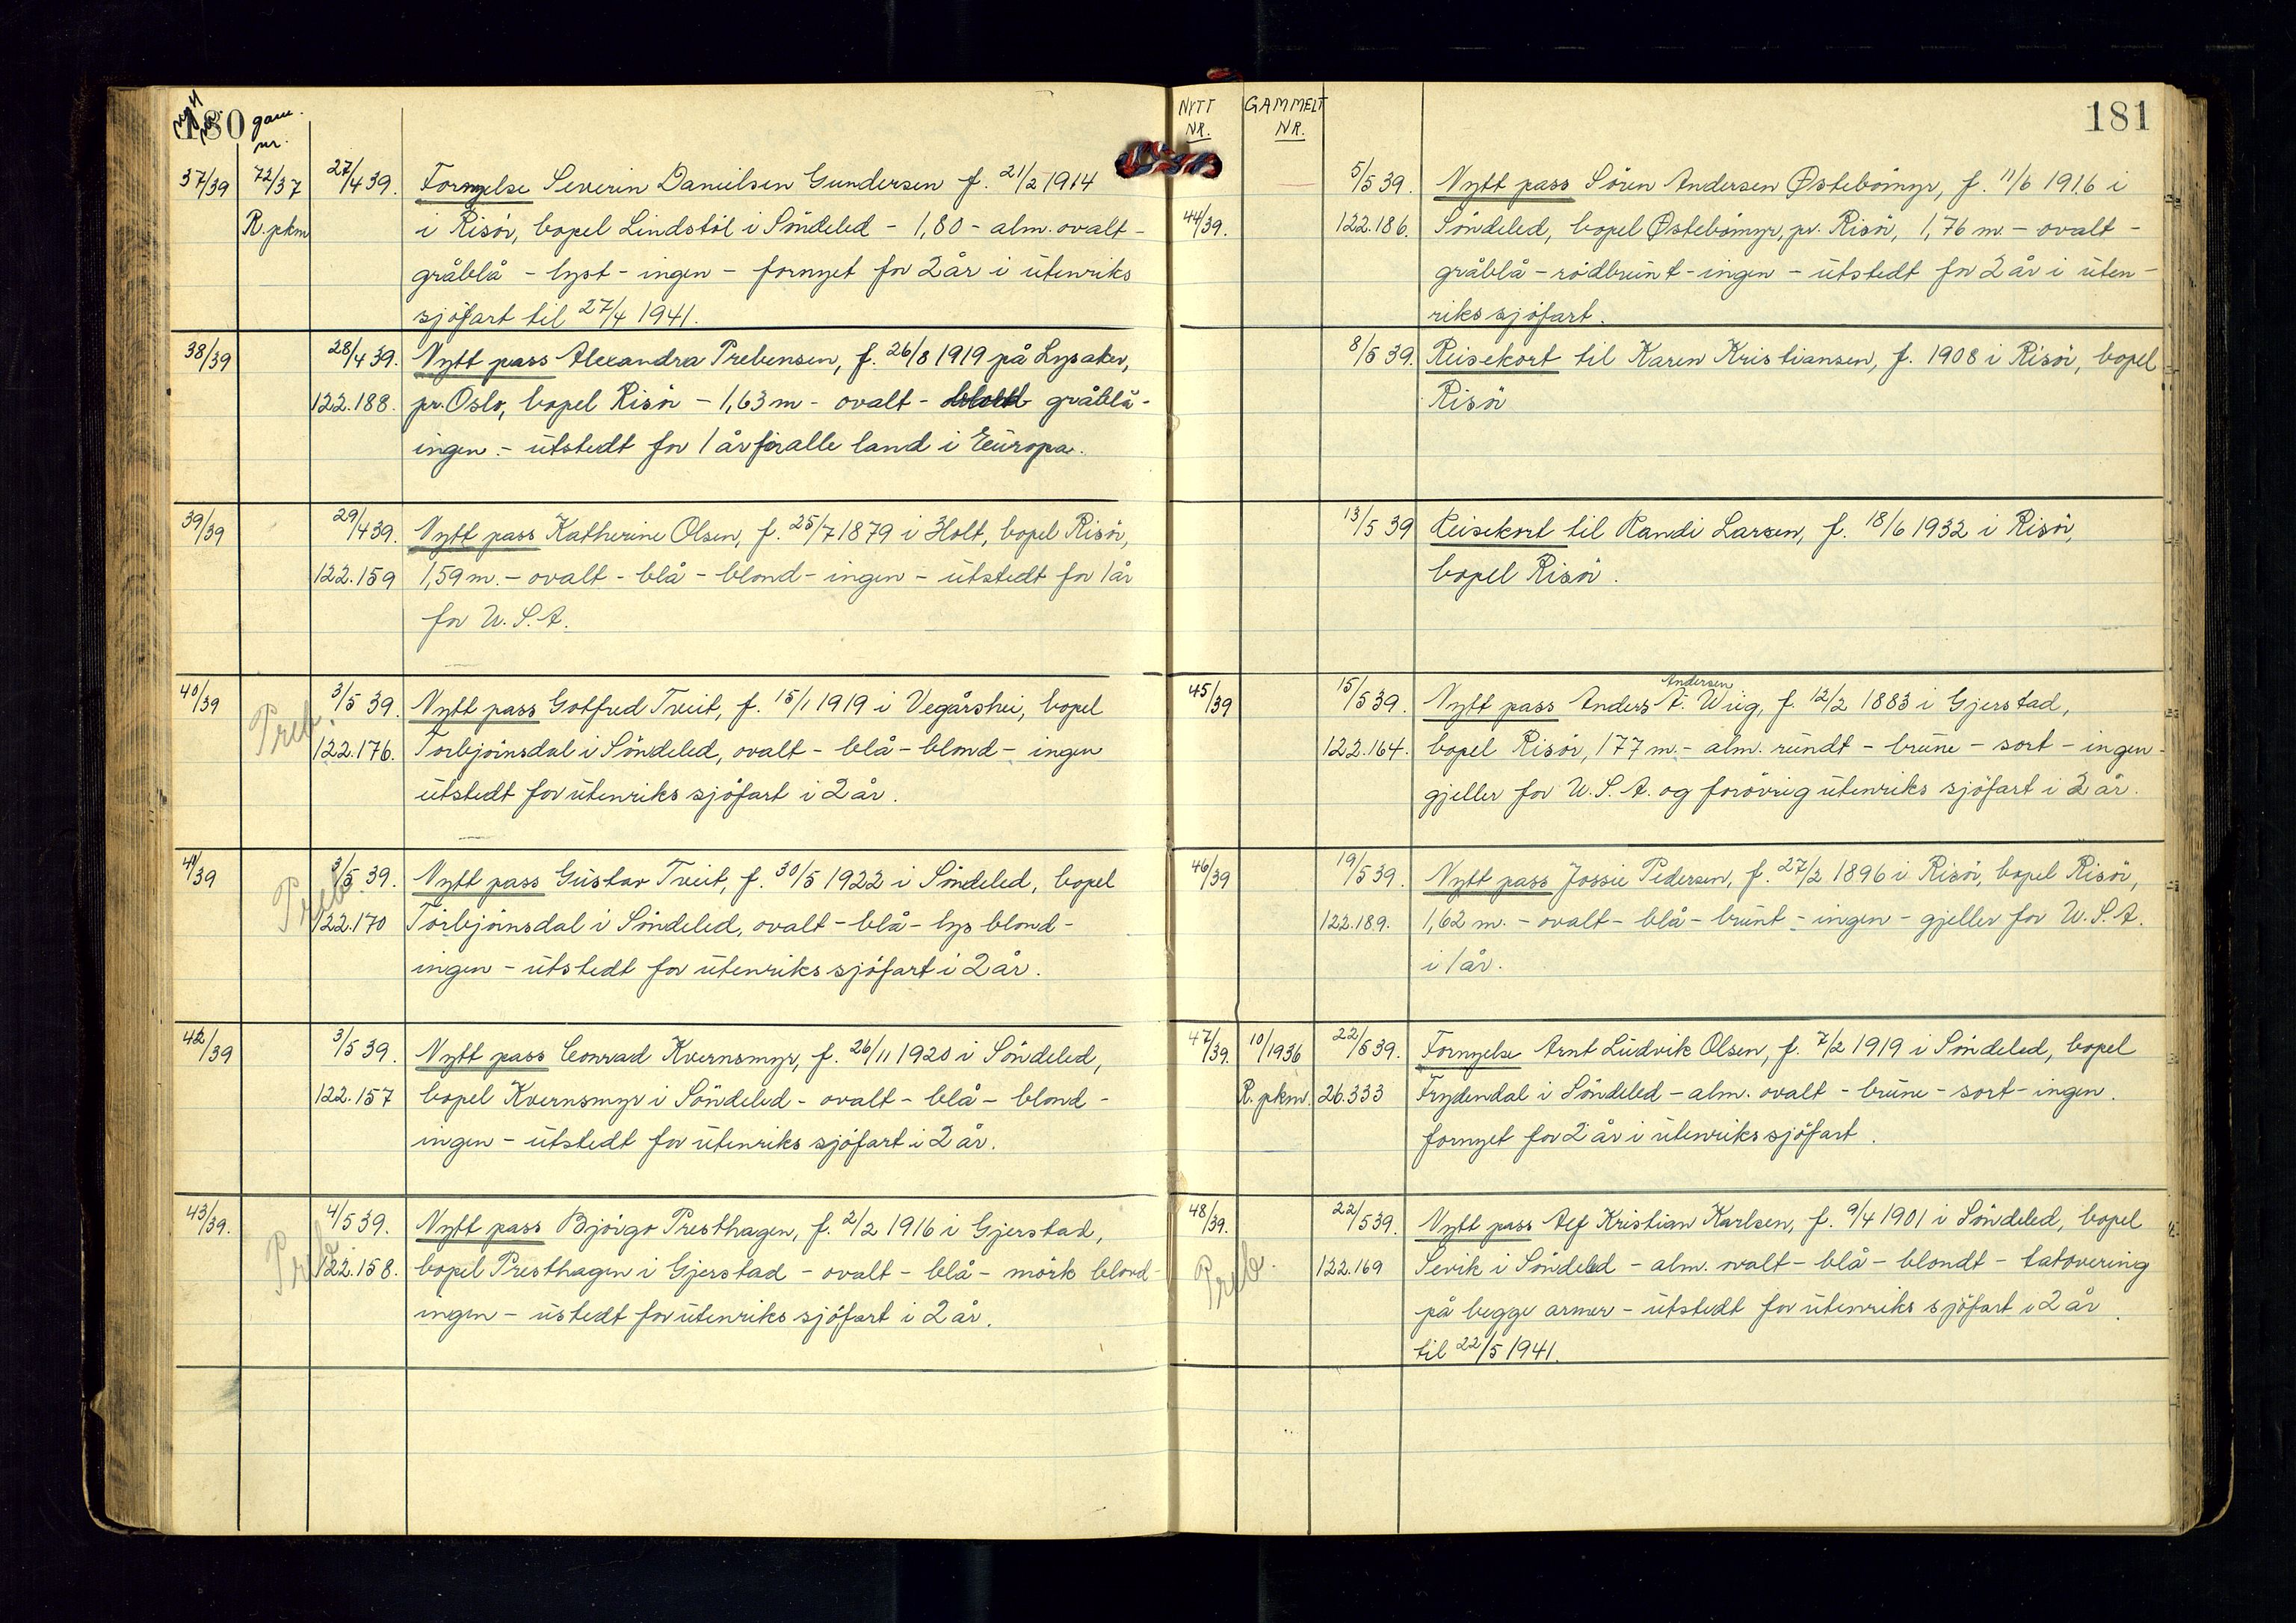 180
nytt nr.
gam. nr.
37/39 72/37 27/4 39. Fornyelse Severin Danielsen Gundersen f. 21/2 1914
R.pkm i Risör, bopel Lindstöl i Söndeled - 1,80 - alm. ovalt -
gråblå - lyst - ingen - fornyet for 2 år i utenriks
sjöfart til 27/4 1941.
38/39 28/4 39. Nytt pass Alexandra Prebensen, f. 26/8 1919 på Lysaker,
122.188. pr. Oslo, bopel Risör - 1,63 m - ovalt - gråblå -
ingen - utstedt for 1 år for alle land i Europa.
39/39 29/4 39. Nytt pass Katherine Olsen, f. 25/7 1879 i Holt, bopel Risör,
122.159 1,59 m. - ovalt - blå - blond - ingen - utstedt for 1 år
for U.S.A.
40/39 3/5 39. Nytt pass Gotfred Treit, f. 15/1 1919 i Vegårshei, bopel
Preb. 122.176. Torbjörnsdal i Söndeled, ovalt - blå - blond - ingen
utstedt for utenriks sjöfart i 2 år.
41/39 3/5 39. Nytt pass Gustav Treit, f. 30/5 1922 i Söndeled, bopel
Preb 122.170 Torbjörnsdal i Söndeled, ovalt - blå - lys blond -
ingen - utstedt for utenriks sjöfart i 2 år.
42/39 3/5 39. Nytt pass Conrad Kvernsmyr, f. 26/11 1920 i Söndeled,
122.157 bopel Kvernsmyr i Söndeled - ovalt - blå - blond -
ingen - utstedt for utenriks sjöfart i 2 år.
43/39. 4/5 39. Nytt pass Björgo Presthagen, f. 2/2 1916 i Gjerstad,
Preb 122.158. bopel Presthagen i Gjerstad - ovalt - blå - mörk blond -
ingen - ustedt for utenriks sjöfart i 2 år.
NYTT NR.
GAMMELT NR.
181
5/5 39. Nytt pass Sören Andersen Østebömyr, f. 11/6 1916 i
44/39. 122.186. Söndeled, bopel Østebömyr, pr. Risör, 1,76 m - ovalt -
gråblå - rödbrunt - ingen - utstedt for 2 år i uten-
riks sjöfart.
8/5 39. Reisekort til Karen Kristiansen, f. 1908 i Risör, bopel
Risör
13/5 39 Reisekort til Randi Larsen, f. 18/6 1932 i Risör,
bopel Risör.
Andersen
45/39 15/5 39. Nytt pass Anders A. Wiig, f. 12/2 1883 i Gjerstad,
122.164. bopel Risör, 177 m. - alm. rundt - brune - sort - ingen -
gjeller for U.S.A. og forövrig utenriks sjöfart i 2 år.
46/39 19/5 39. Nytt pass Jossie Pedersen, f. 27/2 1896 i Risör, bopel Risör,
122.189. 1,62 m. - ovalt - blå - brunt - ingen - gjeller for U.S.A.
i 1 år.
47/39. 10/1936 22/5 39. Fornyelse Arnt Ludvik Olsen, f. 7/2 1919 i Söndeled, bopel
R. pkm. 26.333 Frydendal i Söndeled - alm. ovalt - brune - sort - ingen.
fornyet for 2 år i utenriks sjöfart.
48/39. 22/5 39. Nytt pass Alf Kristian Karlsen, f. 9/4 1901 i Söndeled, bopel
Preb. 122.169 Sevik i Söndeled - alm. ovalt - blå - blondt - tatovering
på begge armer - utstedt for utenriks sjöfart i 2 år
til 22/5 1941.